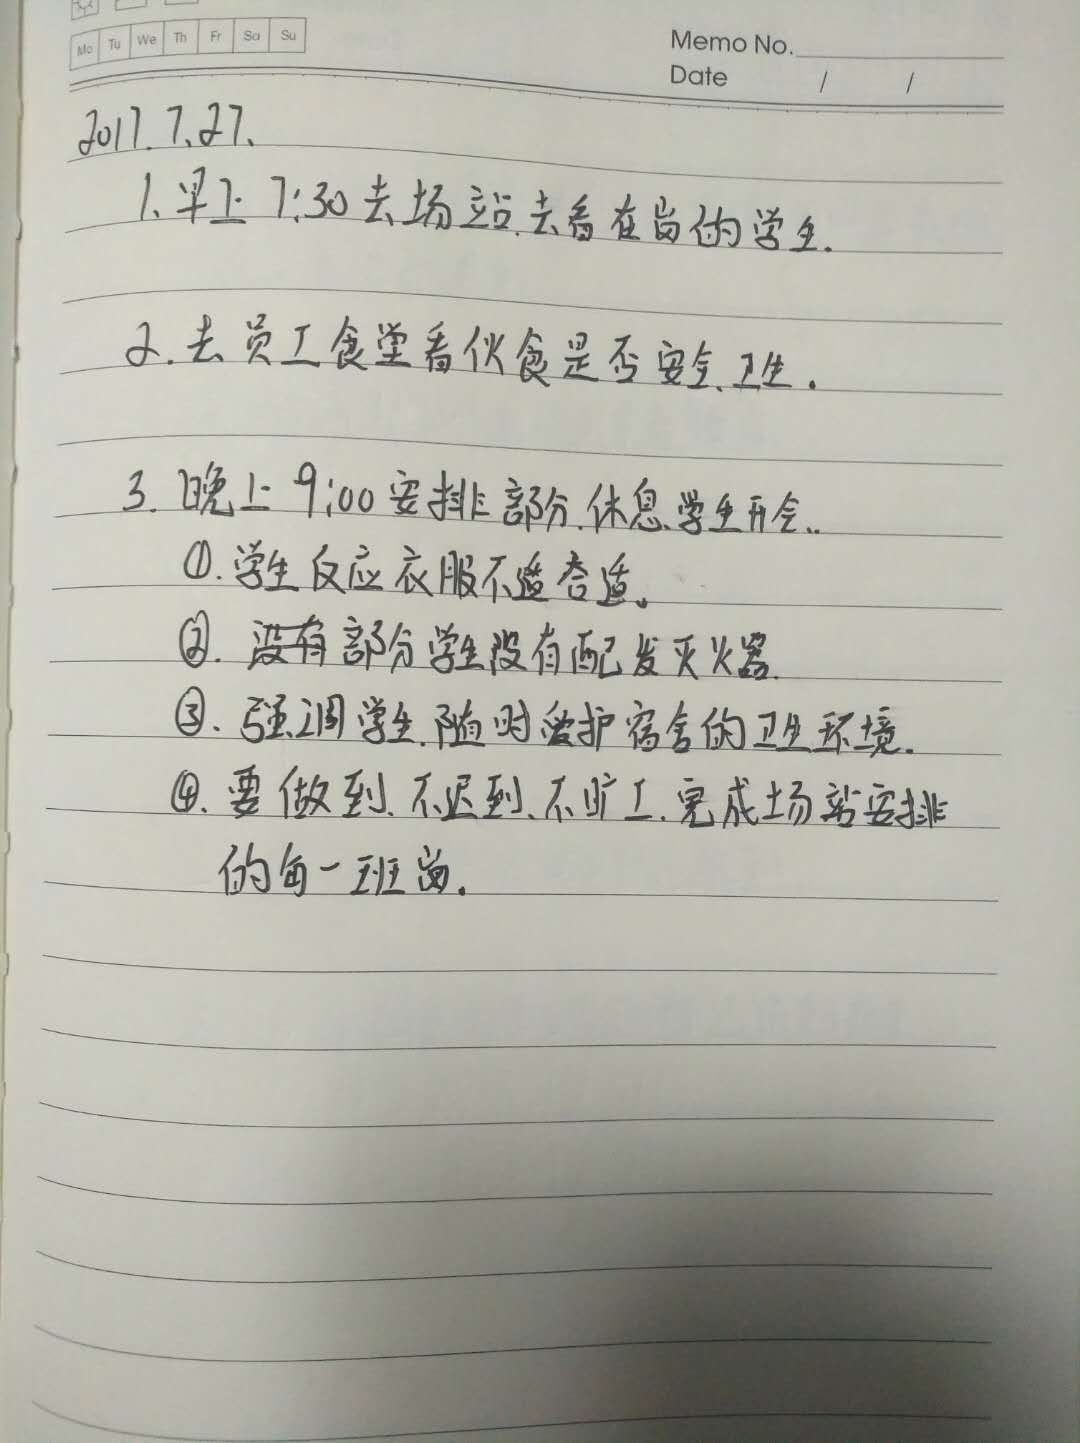 Mo Tu We Th Fr Sa Su
Memo No.
Date / /
2017.7.27.
1. 早上 7:30 去场站.去看在岗的学生.
2. 去员工食堂看伙食是否安全.卫生.
3. 晚上 9:00 安排部分.休息学生开会..
①. 学生反应衣服不适合适。
②. 没有部分学生没有配发灭火器.
③. 强调学生.随时爱护宿舍的卫生环境.
④. 要做到.不迟到.不旷工.完成场站安排
的每一班岗.